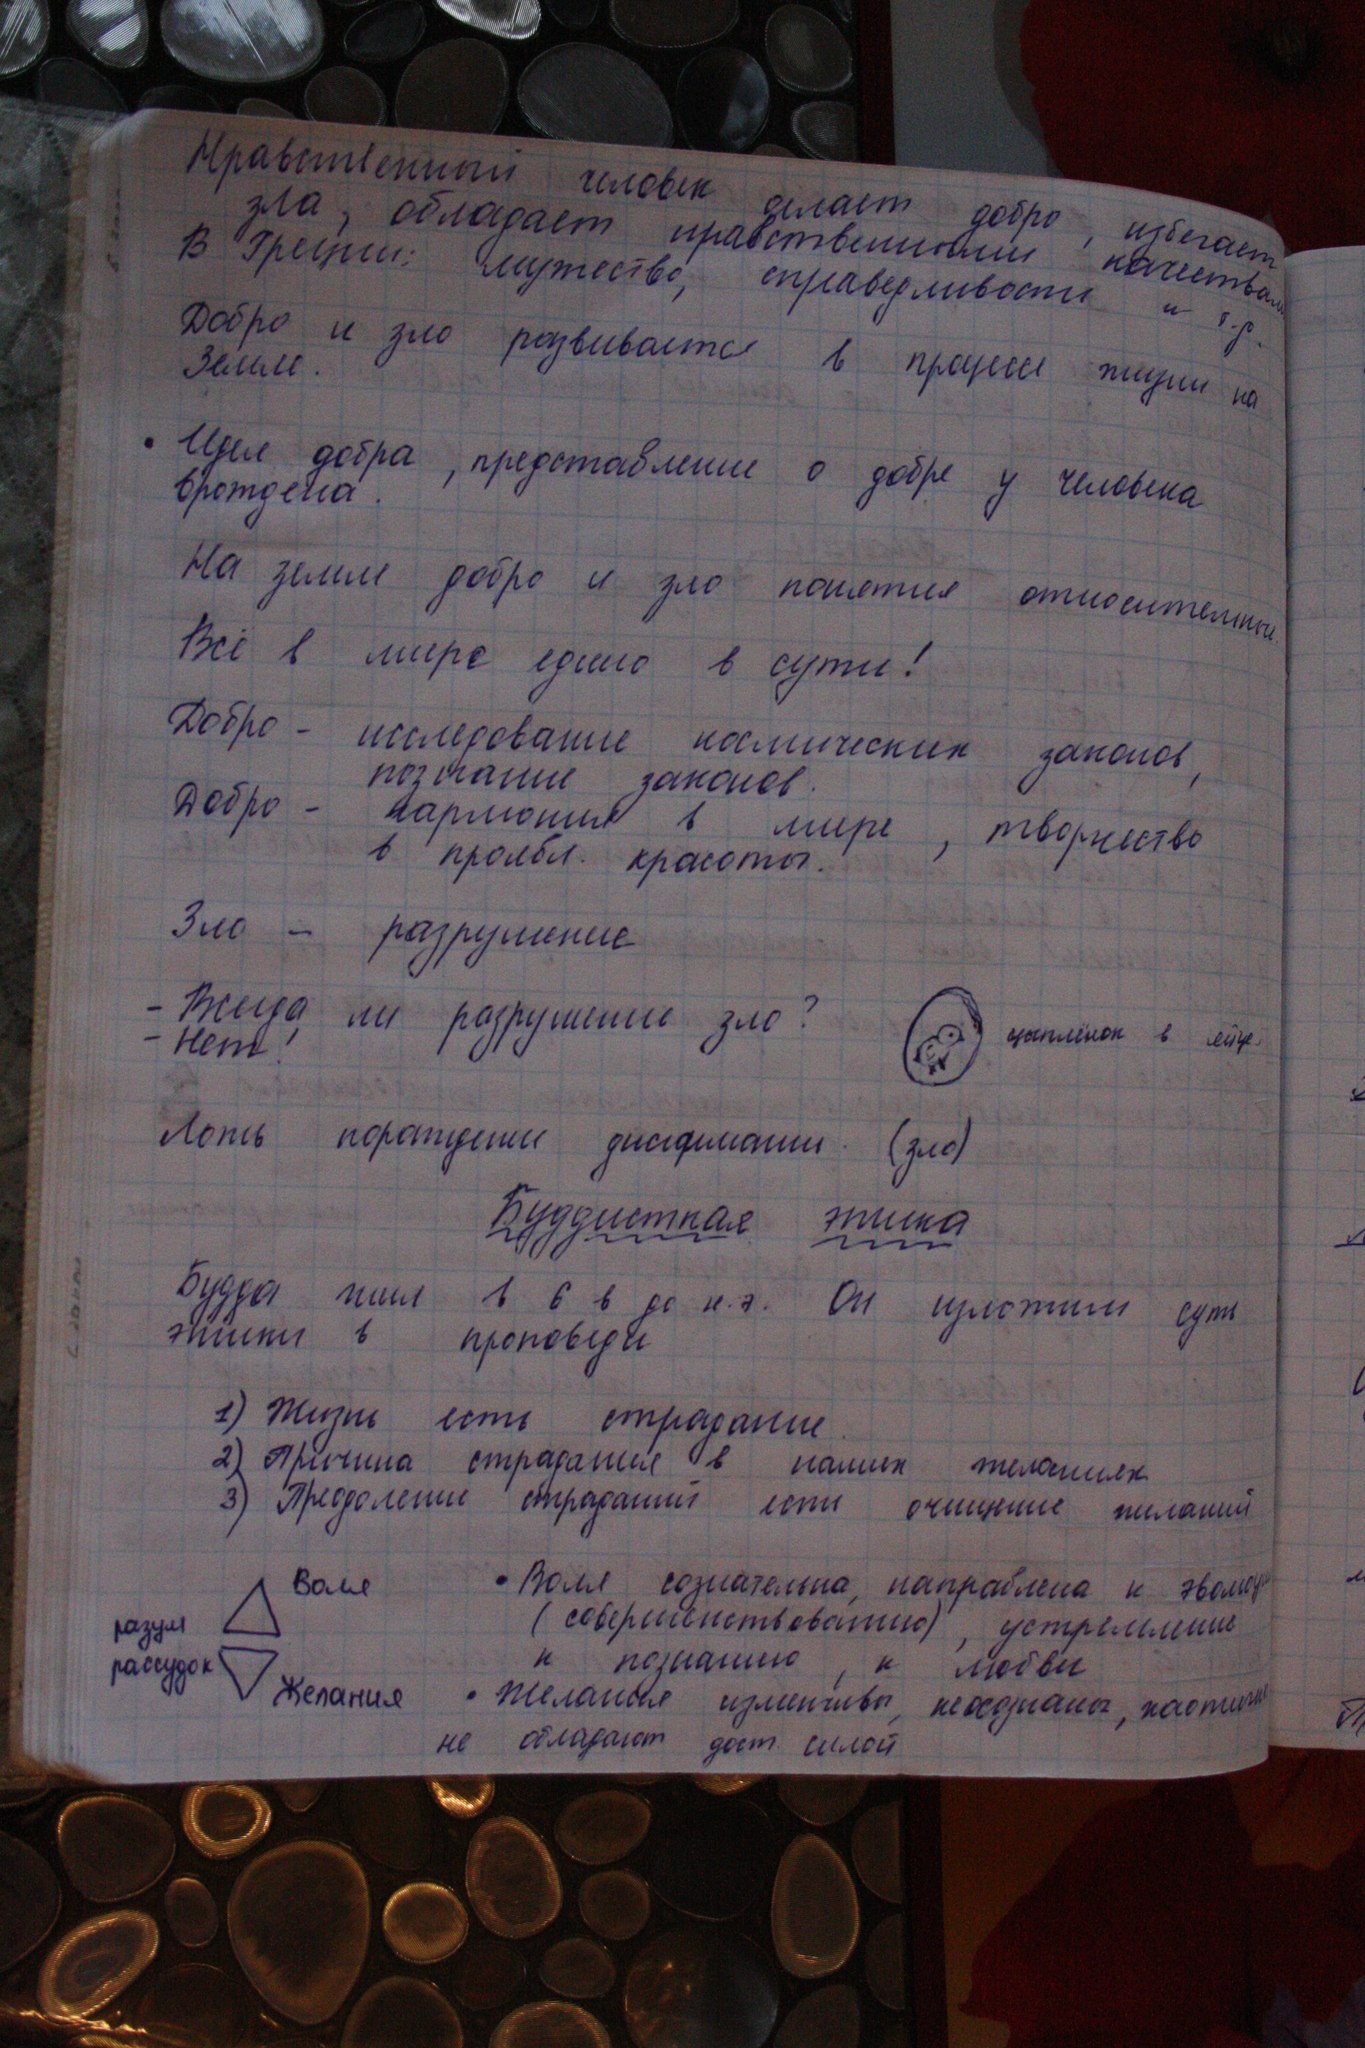 Нравственный человек делает добро, избегает
зла, обладает нравственными качествами
В Греции: мужество, справедливости и т.д.
Добро и зло развивается в процессе жизни на
Земле.
• Идея добра, представление о добре у человека
врождена.
На земле добро и зло понятия относительные.
Всё в мире едино в сути!
Добро - исследование космических законов,
познание законов.
Добро - гармония в мире, творчество
в проявл. красоты.
Зло - разрушение
- Всегда ли разрушение зло?
- Нет!
цыплёнок в яйце.
Ложь порождение дисгармании. (зло)
Буддистская этика
Будда жил в 6 в до н.э. Он изложил суть
этики в проповеди
1) Жизнь есть страдание.
2) Причина страдания в наших желаниях
3) Преодоление страданий есть очищение желаний
Воля
разум
рассудок
Желания
• Воля сознательна, направлена к
(совершенствованию), устремление
к познанию, к любви
• Желания изменчивы, неосознаны,
не обладают дост. силой